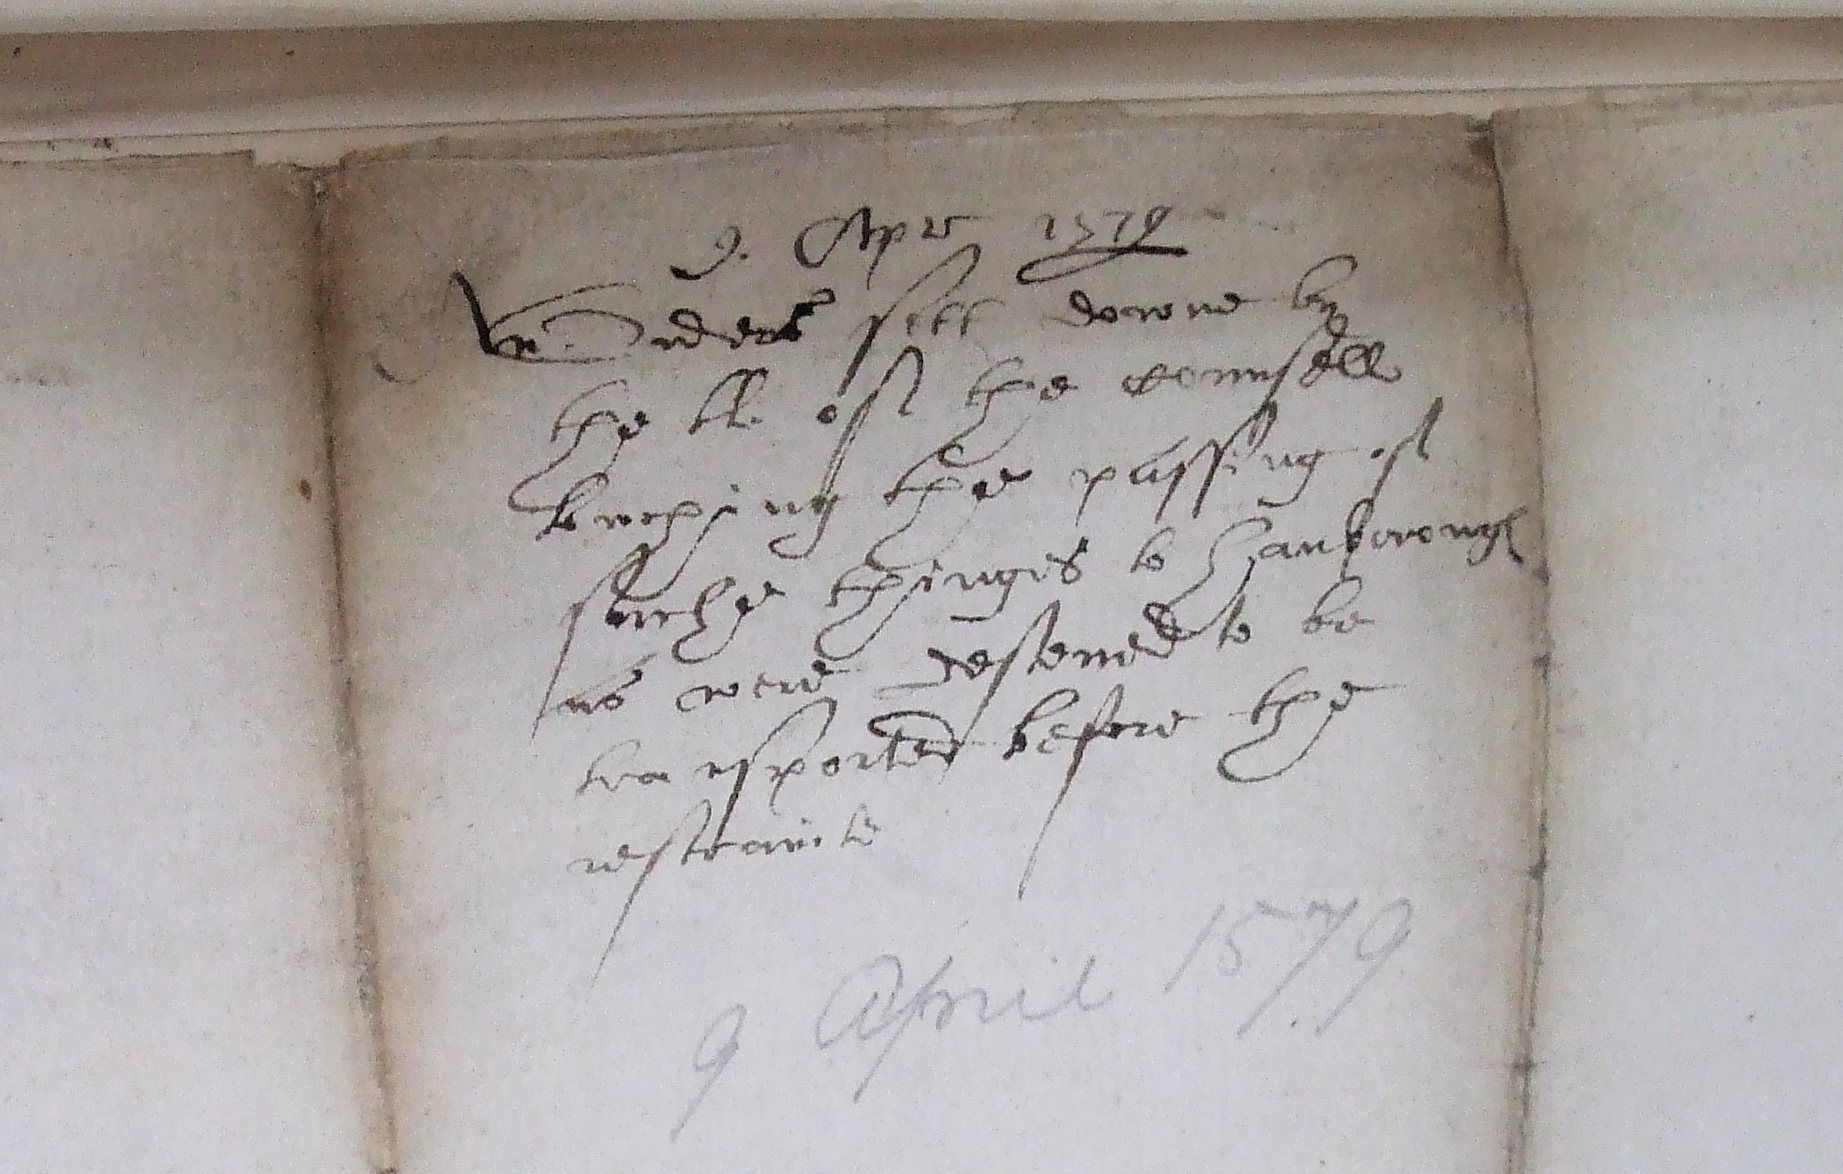 9. Apr 1579
An Order sett downe by
the ll. of the counsell
towching the passing of
suche thinges to Hanborough
as were destened to be
transported before the
restrainte
9 April 1579